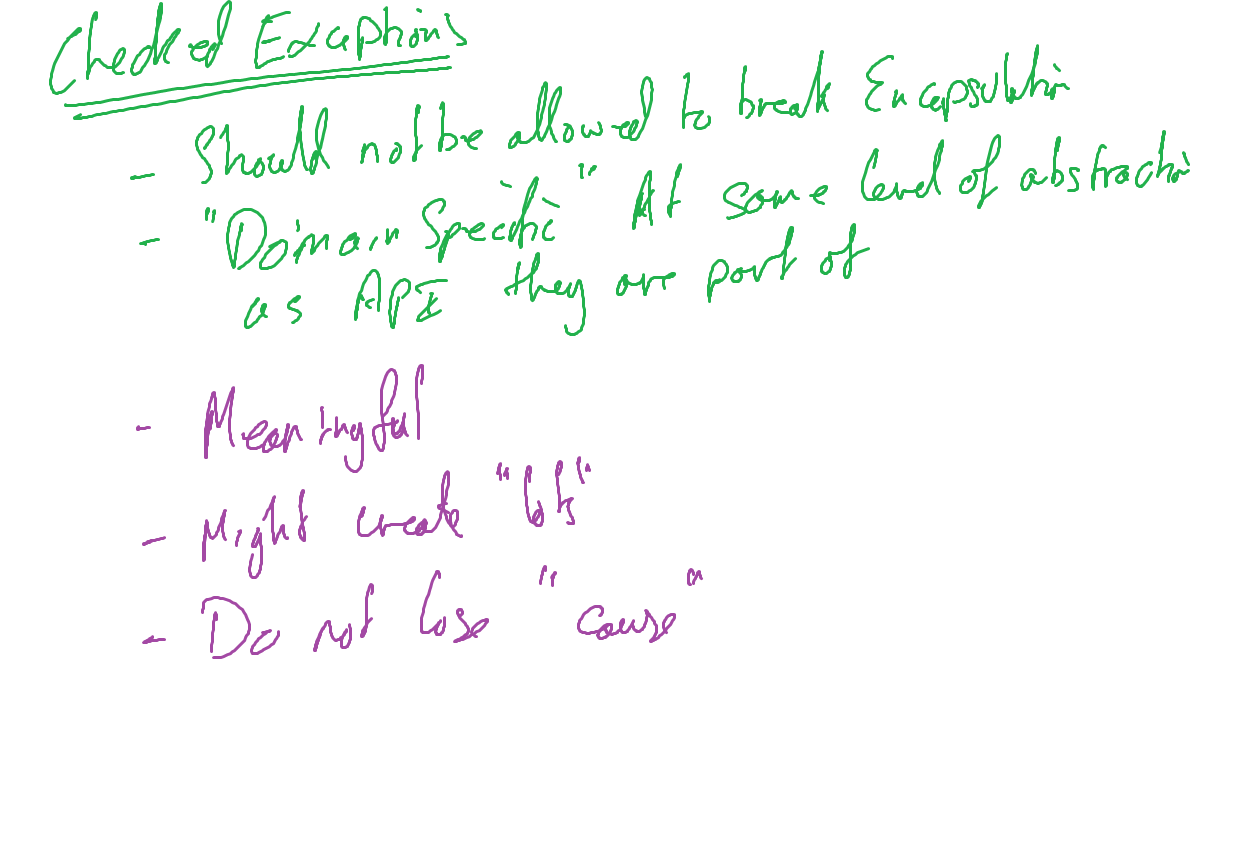 Checked Exceptions
- Should not be allowed to break Encapsulation
- "Domain Specific" At some level of abstraction
as API they are part of
- Meaningful
- Might create "lots"
- Do not lose "cause"